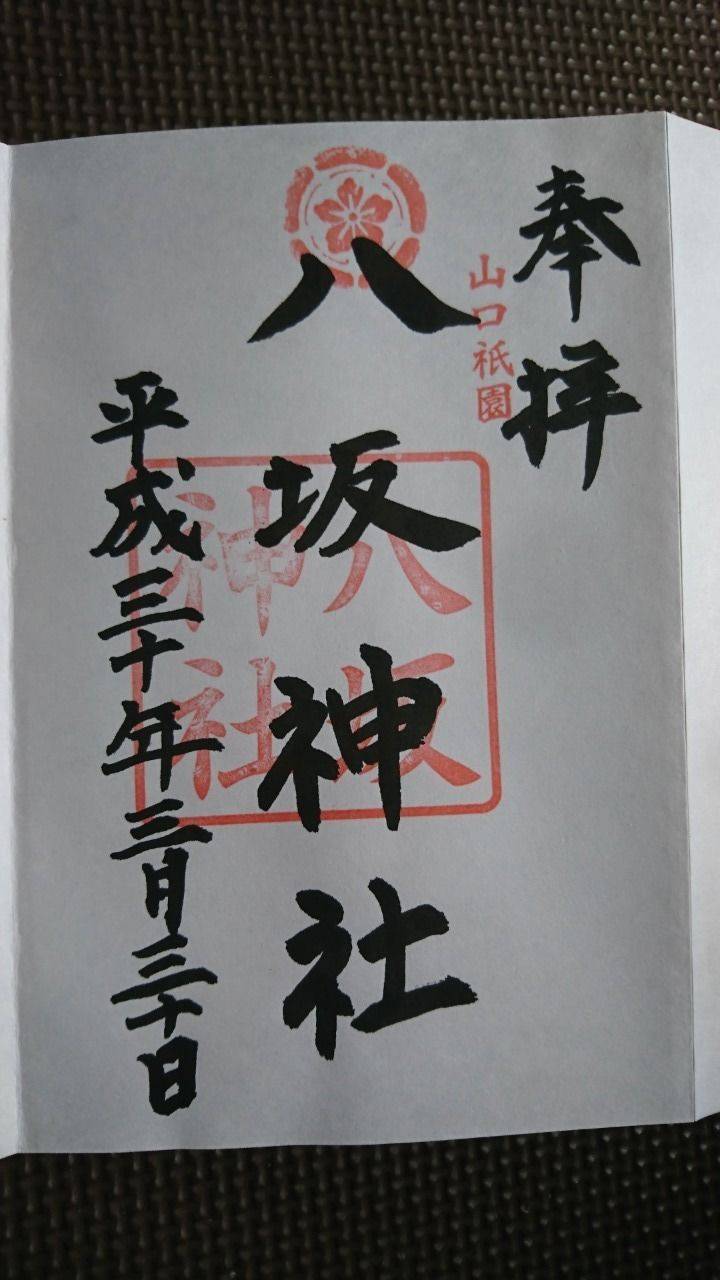 奉拝
山口祇園
八坂神社
八坂
神社
平成三十年三月三十日